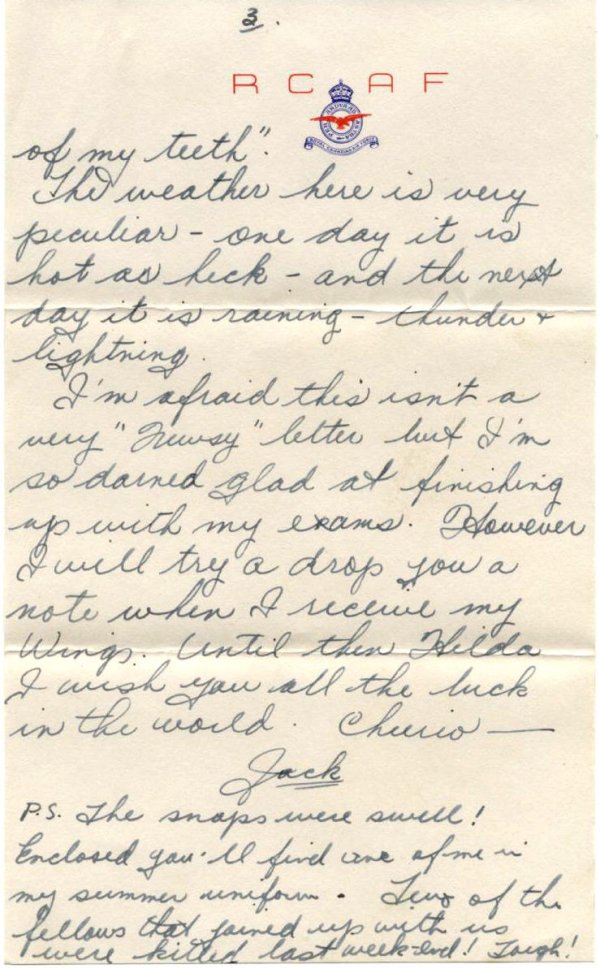 3.
R C A F
ROYAL CANADIAN AIR FORCE
of my teeth".
The weather here is very
peculiar - one day it is
hot as heck - and the next
day it is raining - thunder +
lightning.
I'm afraid this isn't a
very "Newsy" letter but I'm
so darned glad at finishing
up with my exams. However
I will try a drop you a
note when I receive my
Wings. Until then Hilda
I wish you all the luck
in the world. Cheerio —
Jack
P.S. The snaps were swell!
Enclosed you'll find one of me in
my summer uniform. Two of the
fellows that joined up with us
were killed last week-end! Tough!